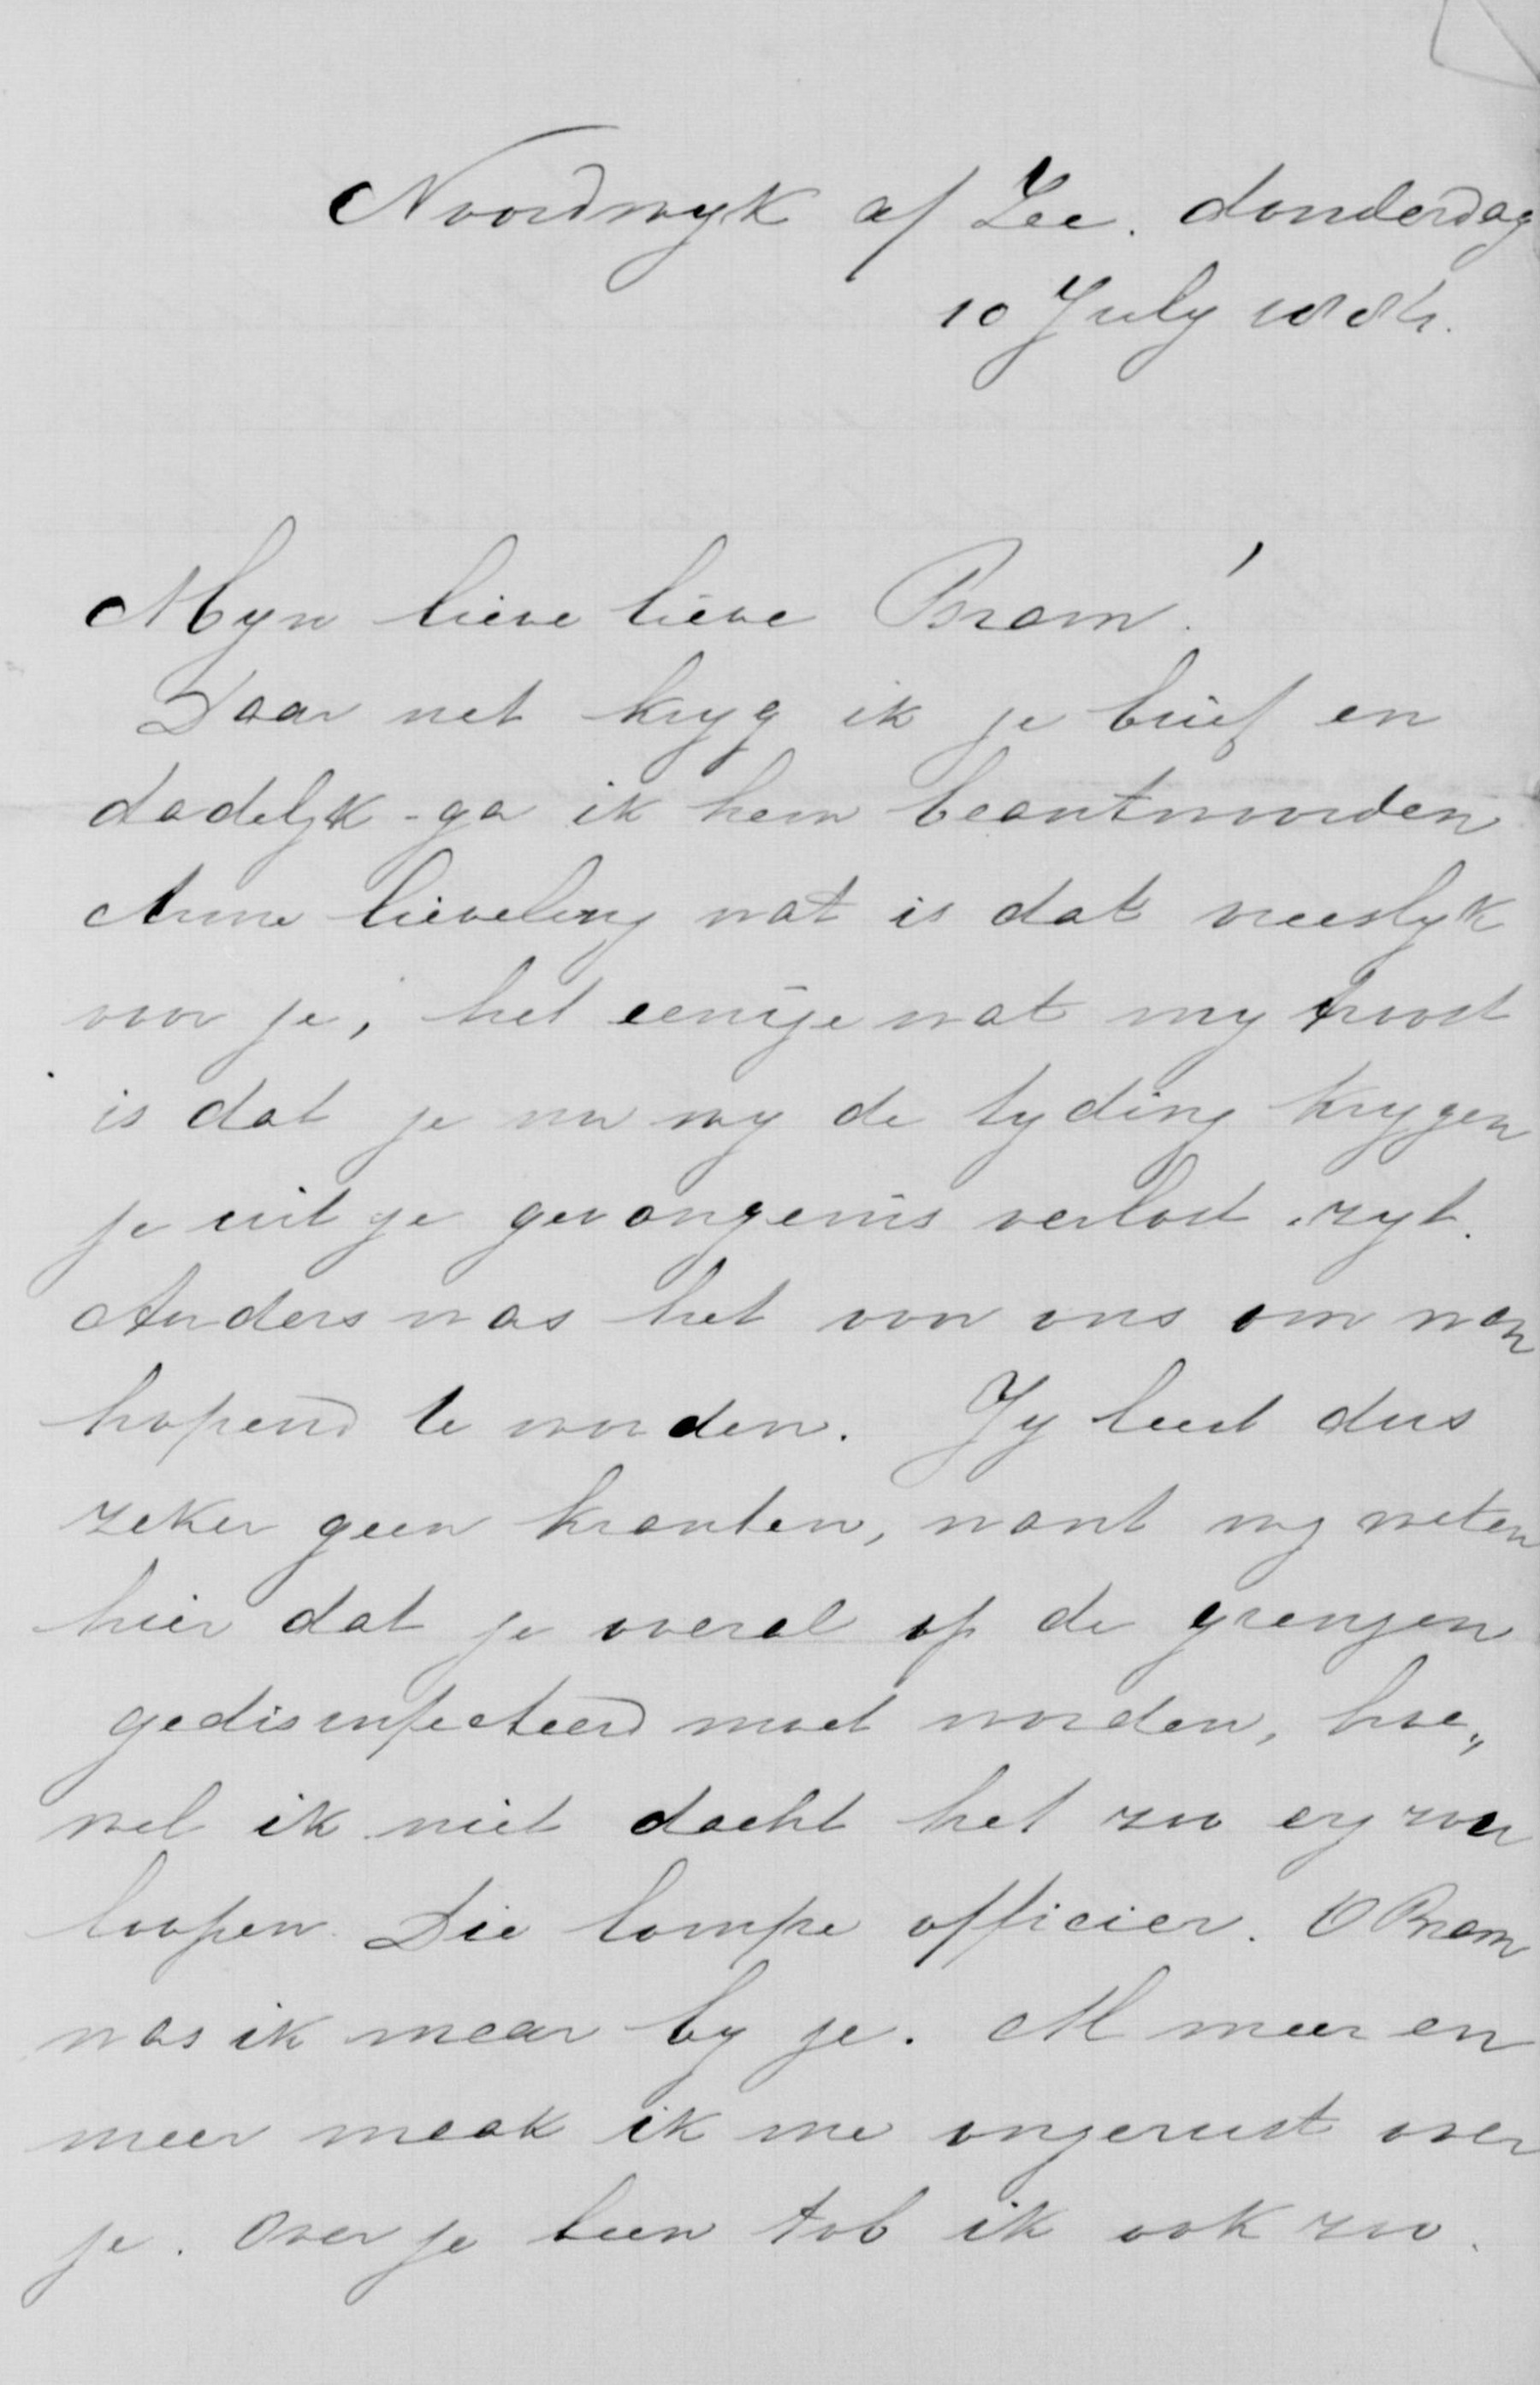 Noordwyk a/ Zee. donderdag
10 July 1884.
Myn lieve lieve Bram!
Daar net kryg ik je brief en
dadelyk ga ik hem beantwoorden
Arme lieveling wat is dat vreeslyk
voor je, het eenige wat my troost
is dat je nu wy de tyding krygen
je uit je gevangenis verlost zyt.
Anders was het voor ons om wan
hopend te worden. Jy leest dus
zeker geen kranten, want wy weten
hier dat je overal op de grenzen
gedisinfecteerd moet worden, hoe„
wel ik niet dacht het zoo erg zou
loopen. Die lompe officier. O Bram
was ik maar by je. Al meer en
meer maak ik me ongerust over
je. Over je been tob ik ook zoo.